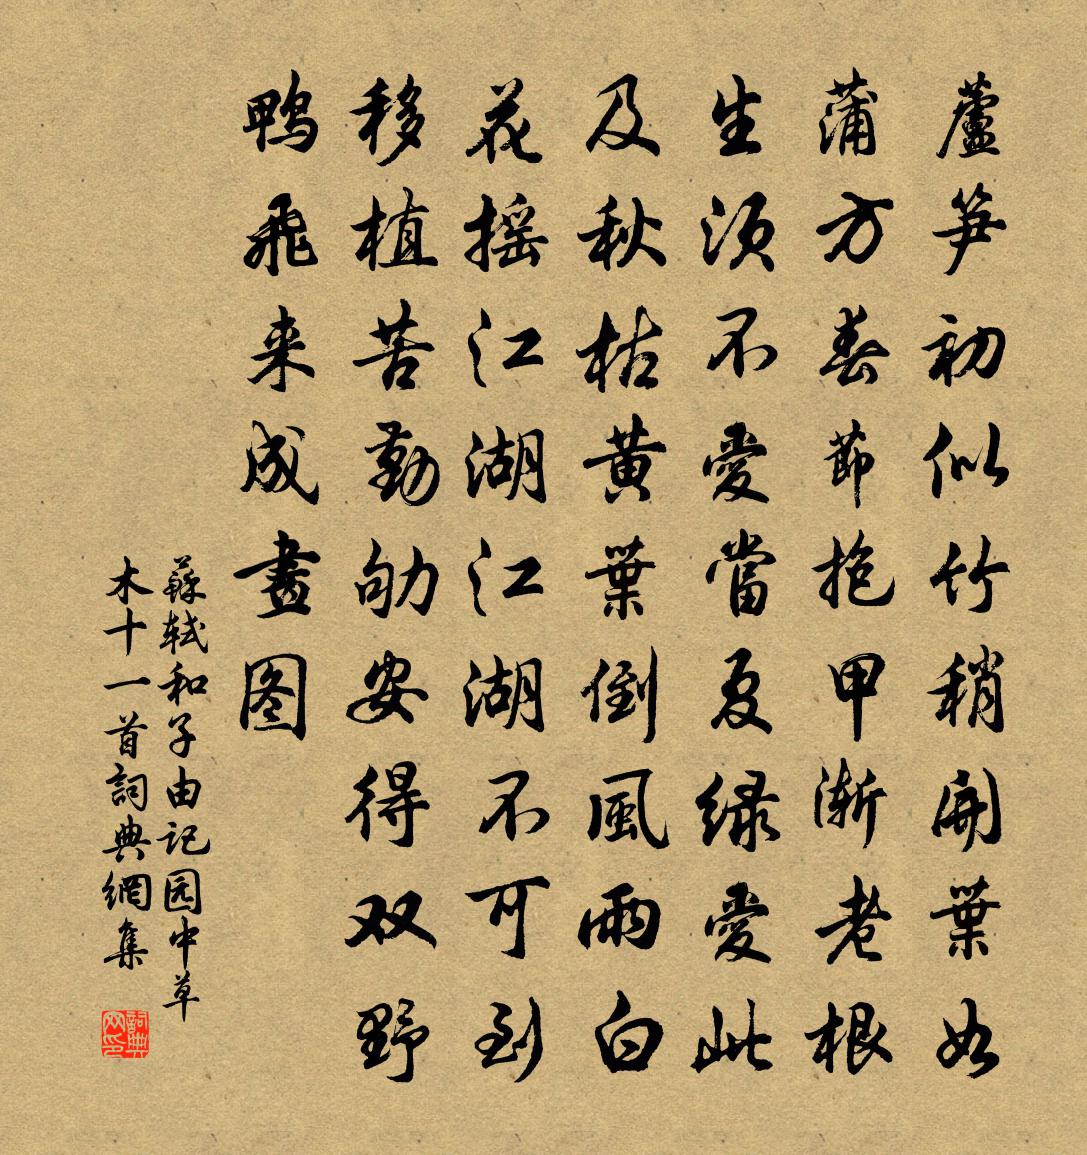 蘆笋初似竹稍開葉如
蒲方春節抱甲漸老根
生須不愛當夏緑愛此
及秋枯黄葉倒風雨白
花摇江湖江湖不可到
移植苦勤劬安得双野
鴨飛来成畫图
蘇軾和子由记园中草
木十一首詞典網集
詞典
网印